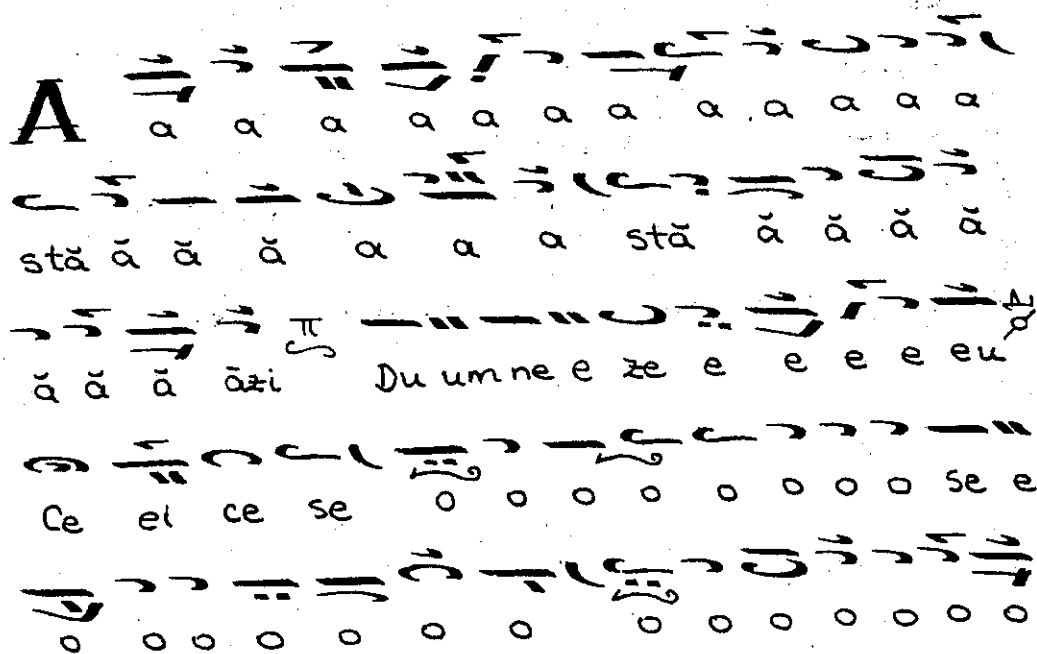 A a a a a a a a a a a a a
stă ă ă ă a a a stă ă ă ă ă
ă ă ă ăzi π Du um ne e ze e e e e eu
Ce el ce se o o o o o o o o se e
o o o o o o o o o o o o o o